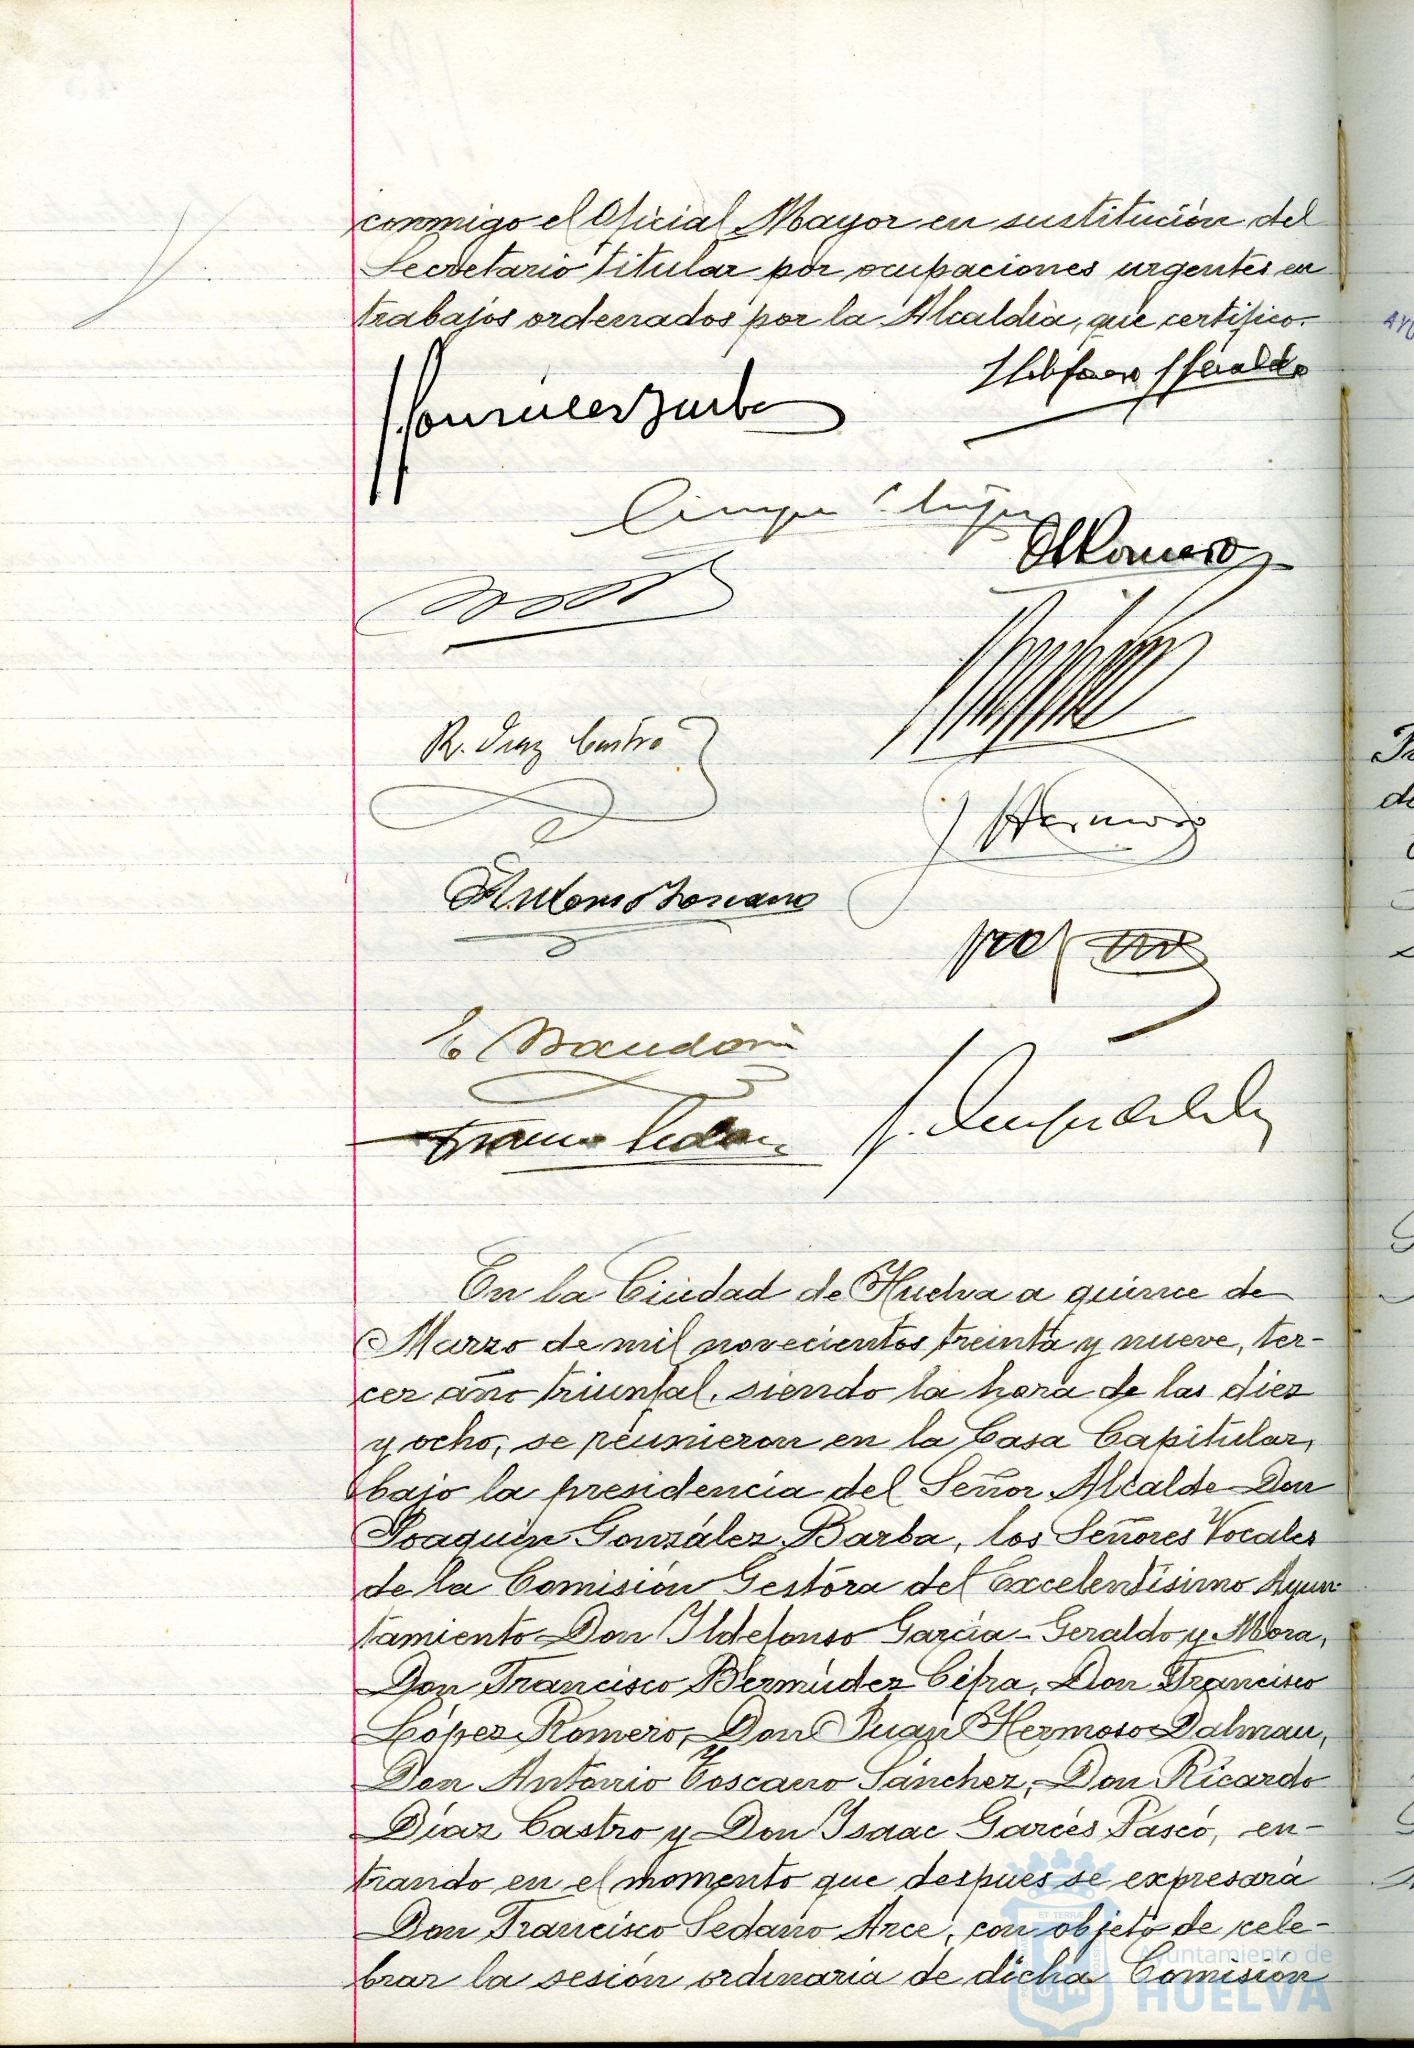 conmigo el Oficial Mayor en sustitución del
Secretario titular por ocupaciones urgentes en
trabajos ordenados por la Alcaldia, que certifico.
R. Diaz Castro
J Hermoso
Antonio Toscano
En la Ciudad de Huelva a quince de
Marzo de mil novecientos treinta y nueve, ter-
cer año triunfal, siendo la hora de las diez
y ocho, se reunieron en la Casa Capitular,
bajo la presidencia del Señor Alcalde Don
Joaquín González Barba, los Señores Vocales
de la Comisión Gestora del Excelentísimo Ayun-
tamiento Don Ildefonso García-Geraldo y Mora,
Don Francisco Bermúdez Cifra, Don Francisco
López Romero, Don Juan Hermoso Dalmau,
Don Antonio Toscano Sánchez, Don Ricardo
Díaz Castro y Don Isaac Garcés Pascó, en-
trando en el momento que despues se expresará
Don Francisco Sedano Arce, con objeto de cele-
brar la sesión ordinaria de dicha Comisión
Ayuntamiento de
HUELVA